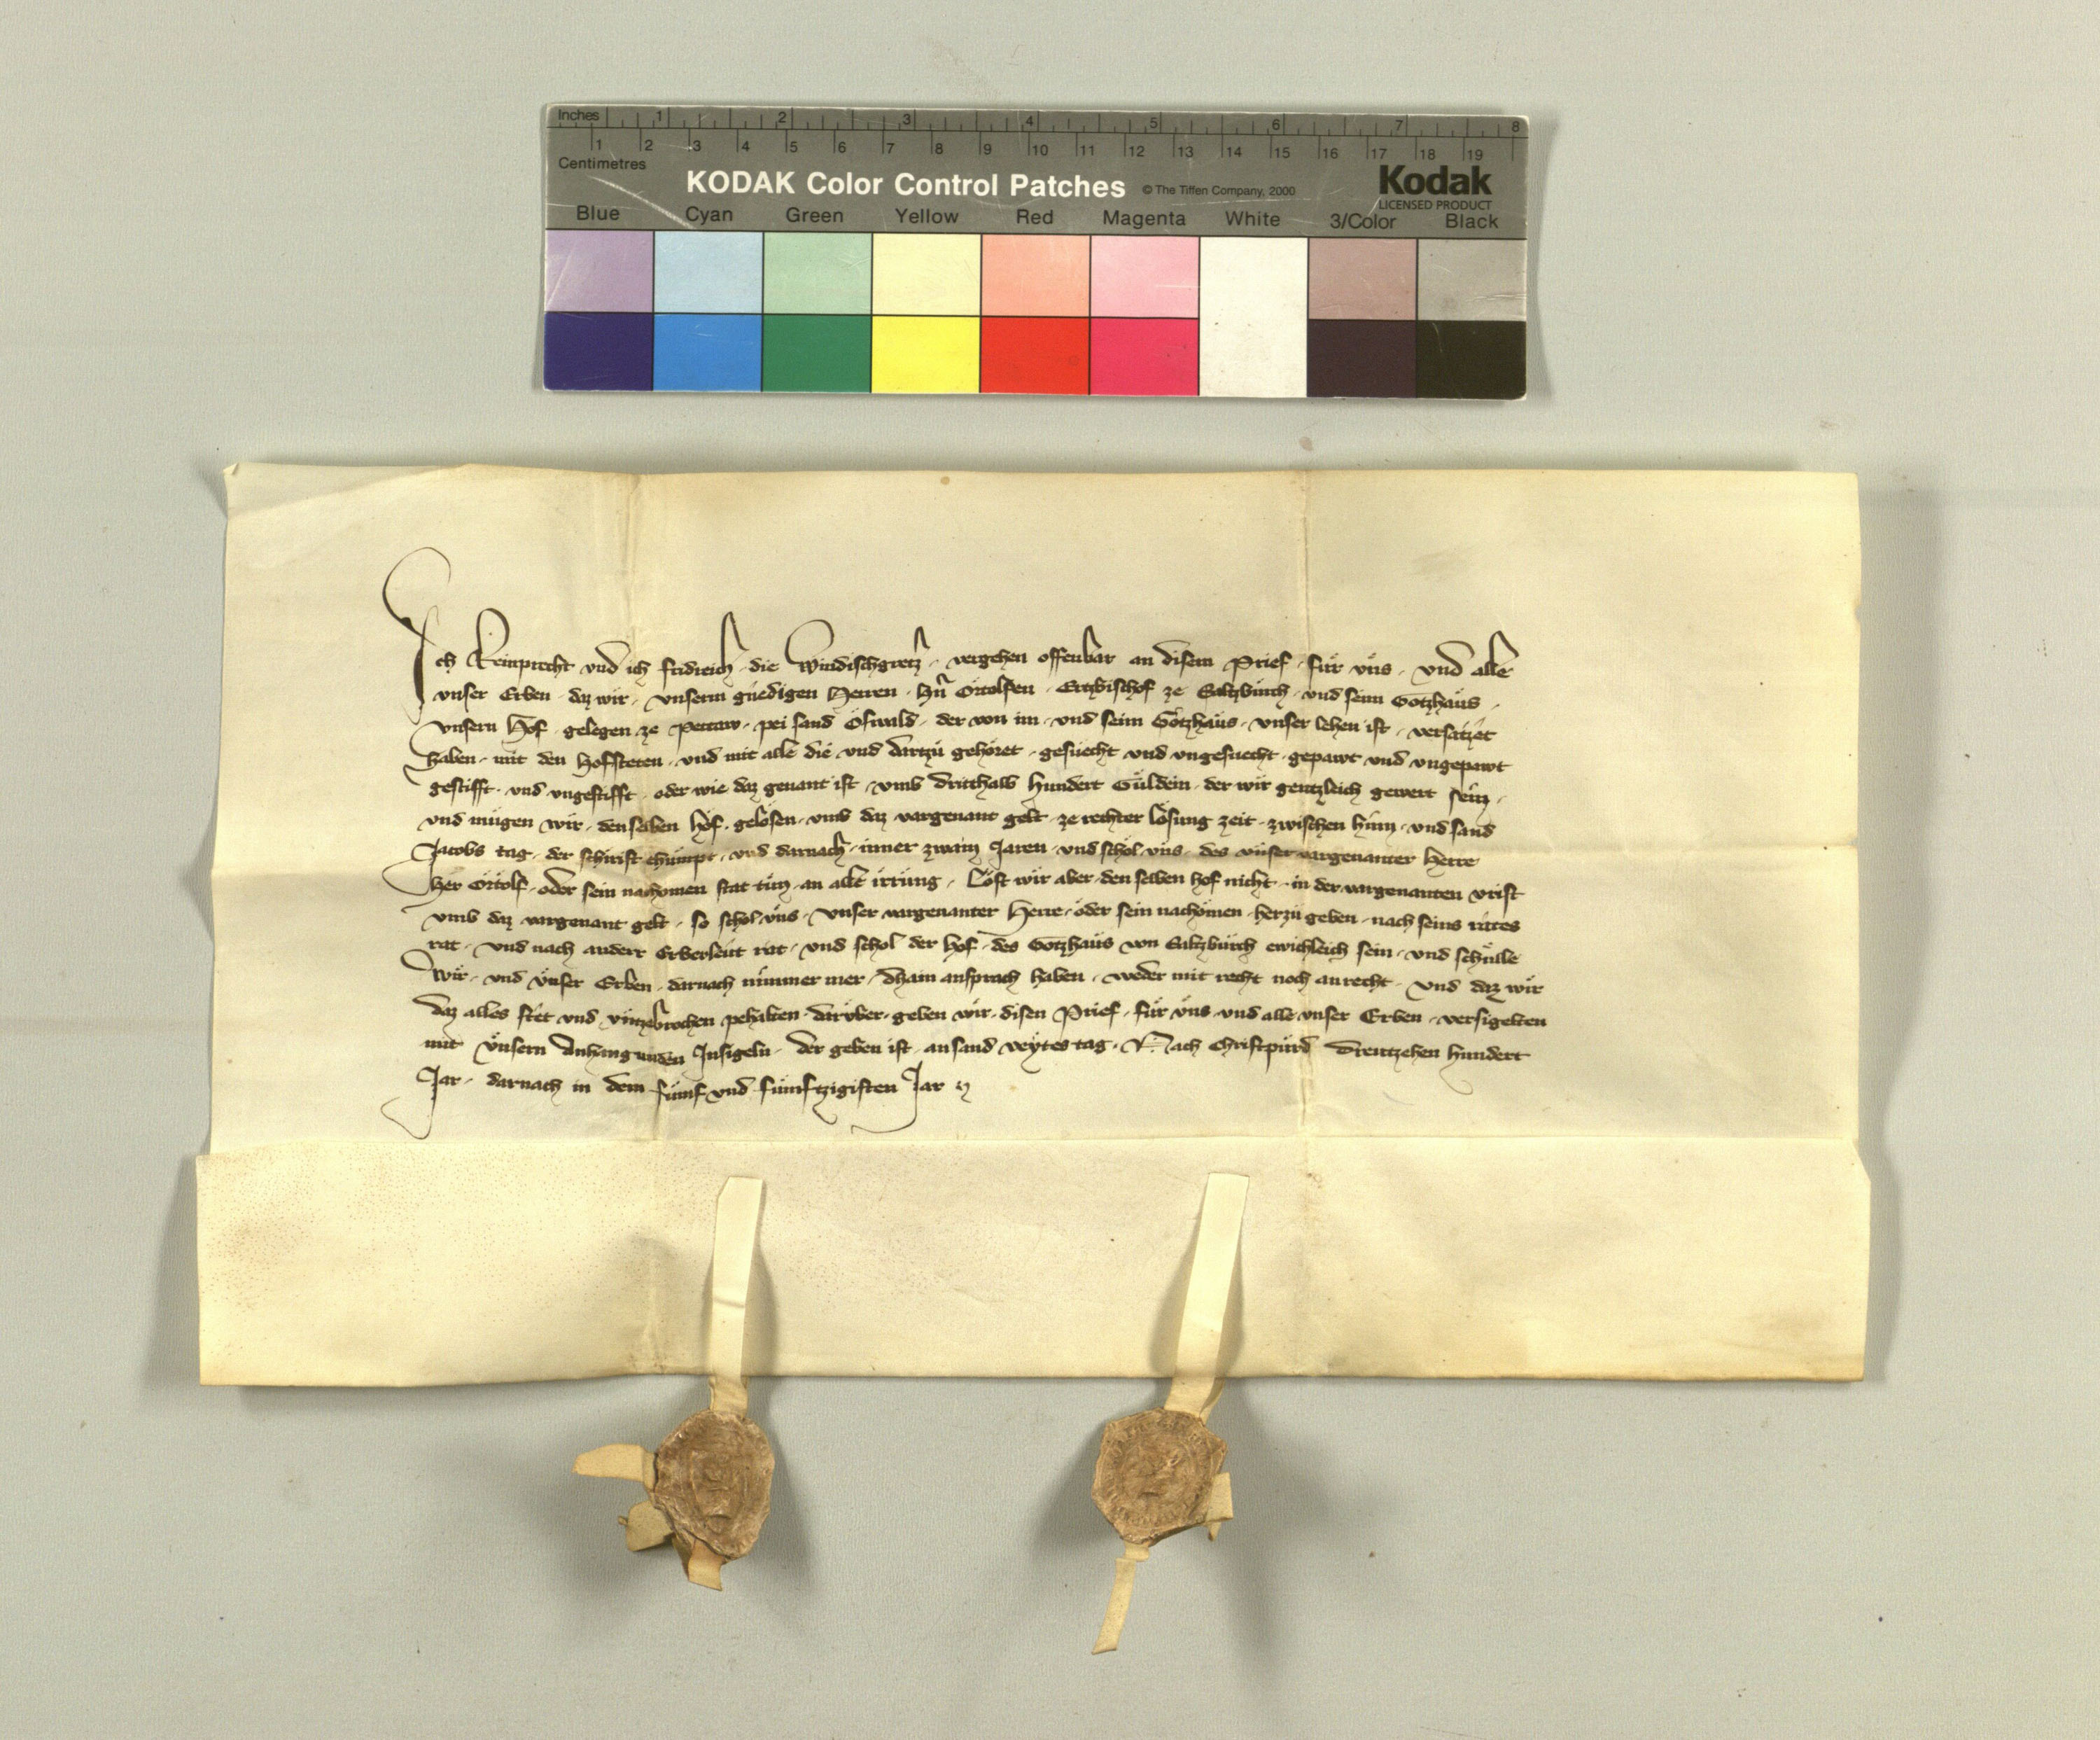 Inches 1 2 3 4 5 6 7 8
1 2 3 4 5 6 7 8 9 10 11 12 13 14 15 16 17 18 19
Centimetres
KODAK Color Control Patches © The Tiffen Company, 2000 Kodak
LICENSED PRODUCT
Blue Cyan Green Yellow Red Magenta White 3/Color Black
Ich Reinprecht vnd ich fridreich die Windischgretz vergehen offenbar an disem Prief für vns vnd alle
vnser Erben daz wir vnserm gnedigen Herren hern Ortolfen Ertzbischof ze Saltzburch vnd seim Gotzhaus
vnsern Hof gelegen ze Pettaw pei sand Oswald der von im vnd seim Gotzhaus vnser lehen ist versatzet
haben mit den Hofsteten vnd mit alle die vnd dartzu gehöret gesuecht vnd vngesuecht gepawt vnd vngepawt
gestifft vnd vngestifft oder wie daz genant ist vmb dritthalb hundert Guldein der wir gentzleich gewert sein
vnd mügen wir denselben hof gelosen vmb daz vargenant gelt ze rechter losung zeit zwischen hinn vnd sand
Jacobs tag der schirist chumpt vnd darnach inner zwain Jaren vnd schol vns des vnser vargenanter Herre
her Ortolf oder sein nachomen stat tun an alle irrung Löst wir aber den selben hof nicht in der vargenanten vrist
vmb daz vargenant gelt so schol vns vnser vargenanter Herre oder sein nachomen herzu geben nach seins rates
rat vnd nach anderr Erberleut rat vnd schol der hof des Gotzhaus von Saltzburch ewichleich sein vnd schülle
wir vnd vnser Erben darnach nimmer mer dhain ansprach haben weder mit recht noch an recht vnd daz wir
daz alles stet vnd vntzebrochen pehalten darüber geben wir disen Prief für vns vnd alle vnser Erben versigelten
mit vnsern Anhangunden Insigeln der geben ist an sand veytes tag Nach Christpurd Dreutzehen hundert
Jar darnach in dem fümf vnd fümftzigisten Jar